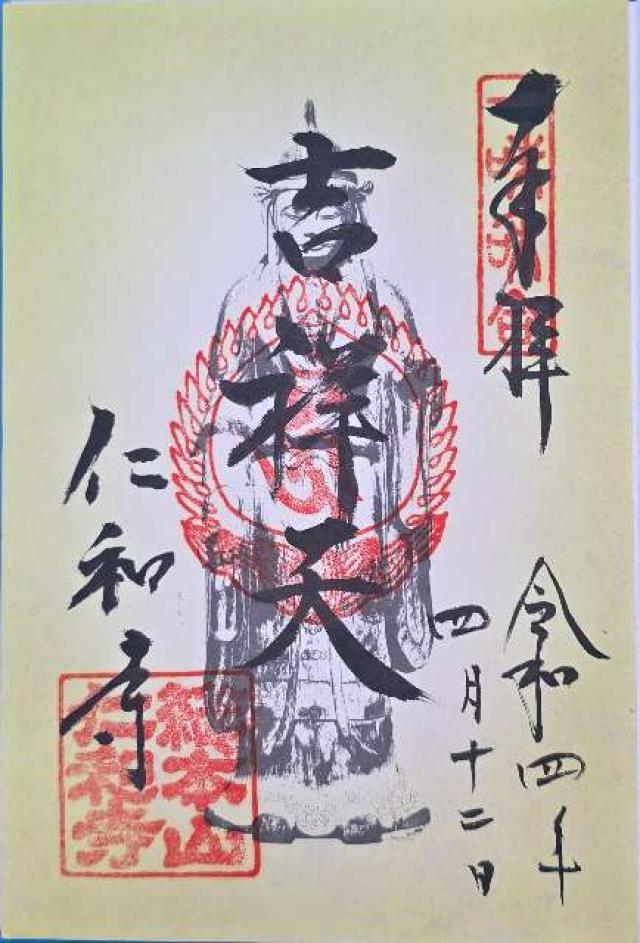 奉拝
令和四年
四月十二日
吉祥天
仁和寺
総本山
仁和寺